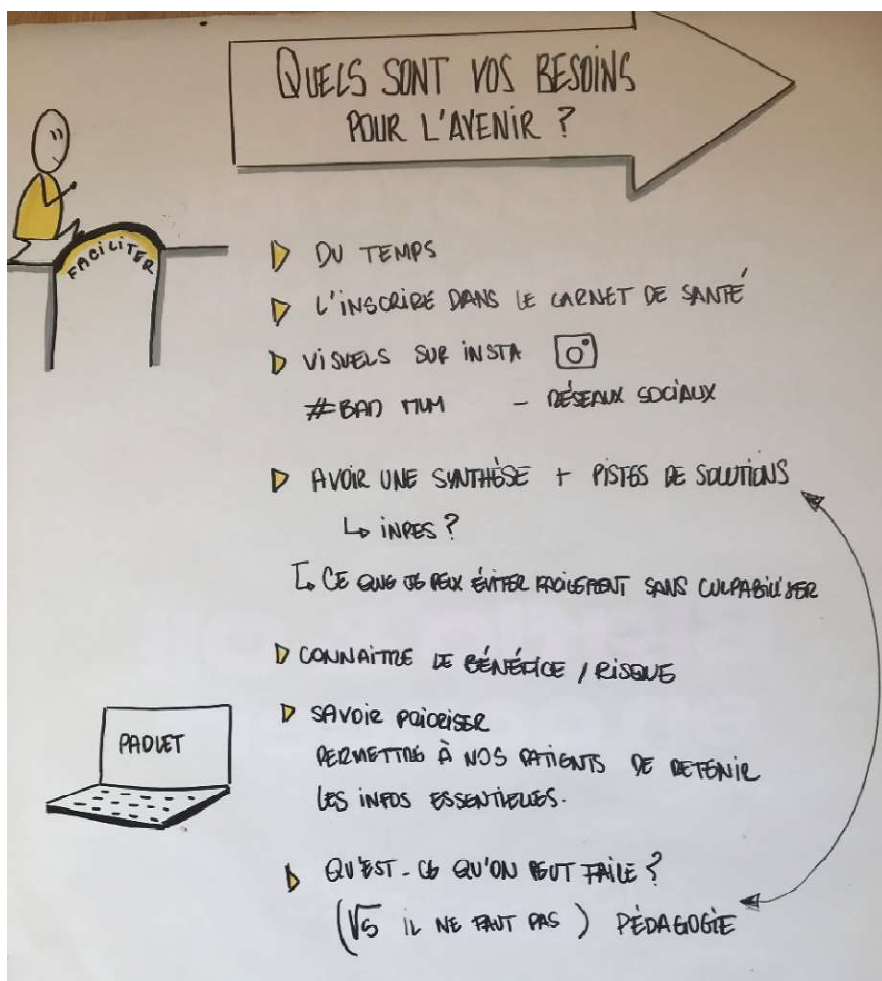 QUELS SONT VOS BESOINS
POUR L'AVENIR ?
FACILITER
DU TEMPS
L'INSCRIRE DANS LE CARNET DE SANTÉ
VISUELS SUR INSTA
#BAD MUM - RÉSEAUX SOCIAUX
AVOIR UNE SYNTHÈSE + PISTES DE SOLUTIONS
↳ INPES ?
↳ CE QUE JE PEUX ÉVITER FACILEMENT SANS CULPABILISER
CONNAÎTRE LE BÉNÉFICE / RISQUE
SAVOIR PRIORISER
PERMETTRE À NOS PATIENTS DE RETENIR
LES INFOS ESSENTIELLES.
PADLET
QU'EST-CE QU'ON PEUT FAIRE ?
(VS IL NE FAUT PAS) PÉDAGOGIE